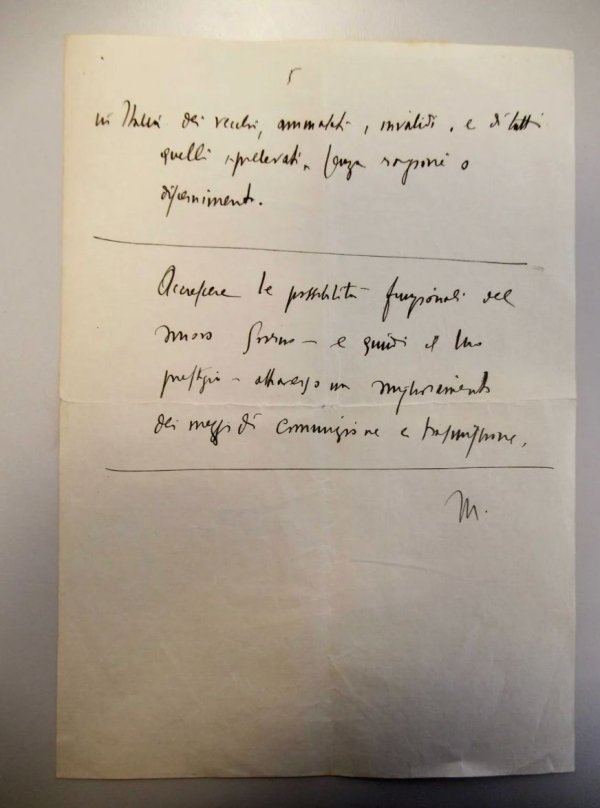 5
in Italia dei vecchi, ammalati, invalidi, e di tutti
quelli prelevati, senza ragione o
discernimento.
Accrescere le possibilità funzionali del
nuovo Governo – e quindi il suo
prestigio – attraverso un miglioramento
dei mezzi di comunicazione e trasmissione.
M.